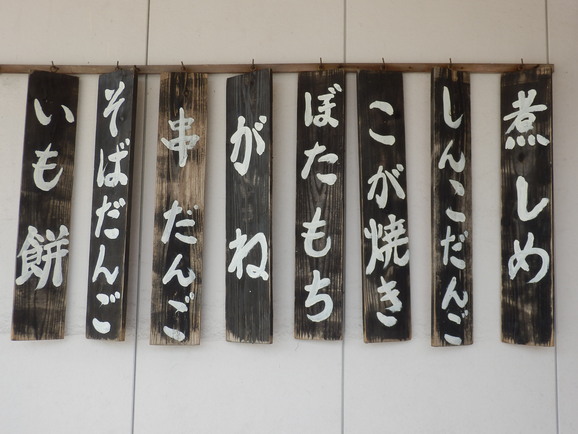 煮しめ
しんこだんご
こが焼き
ぼたもち
がね
串だんご
そばだんご
いも餅